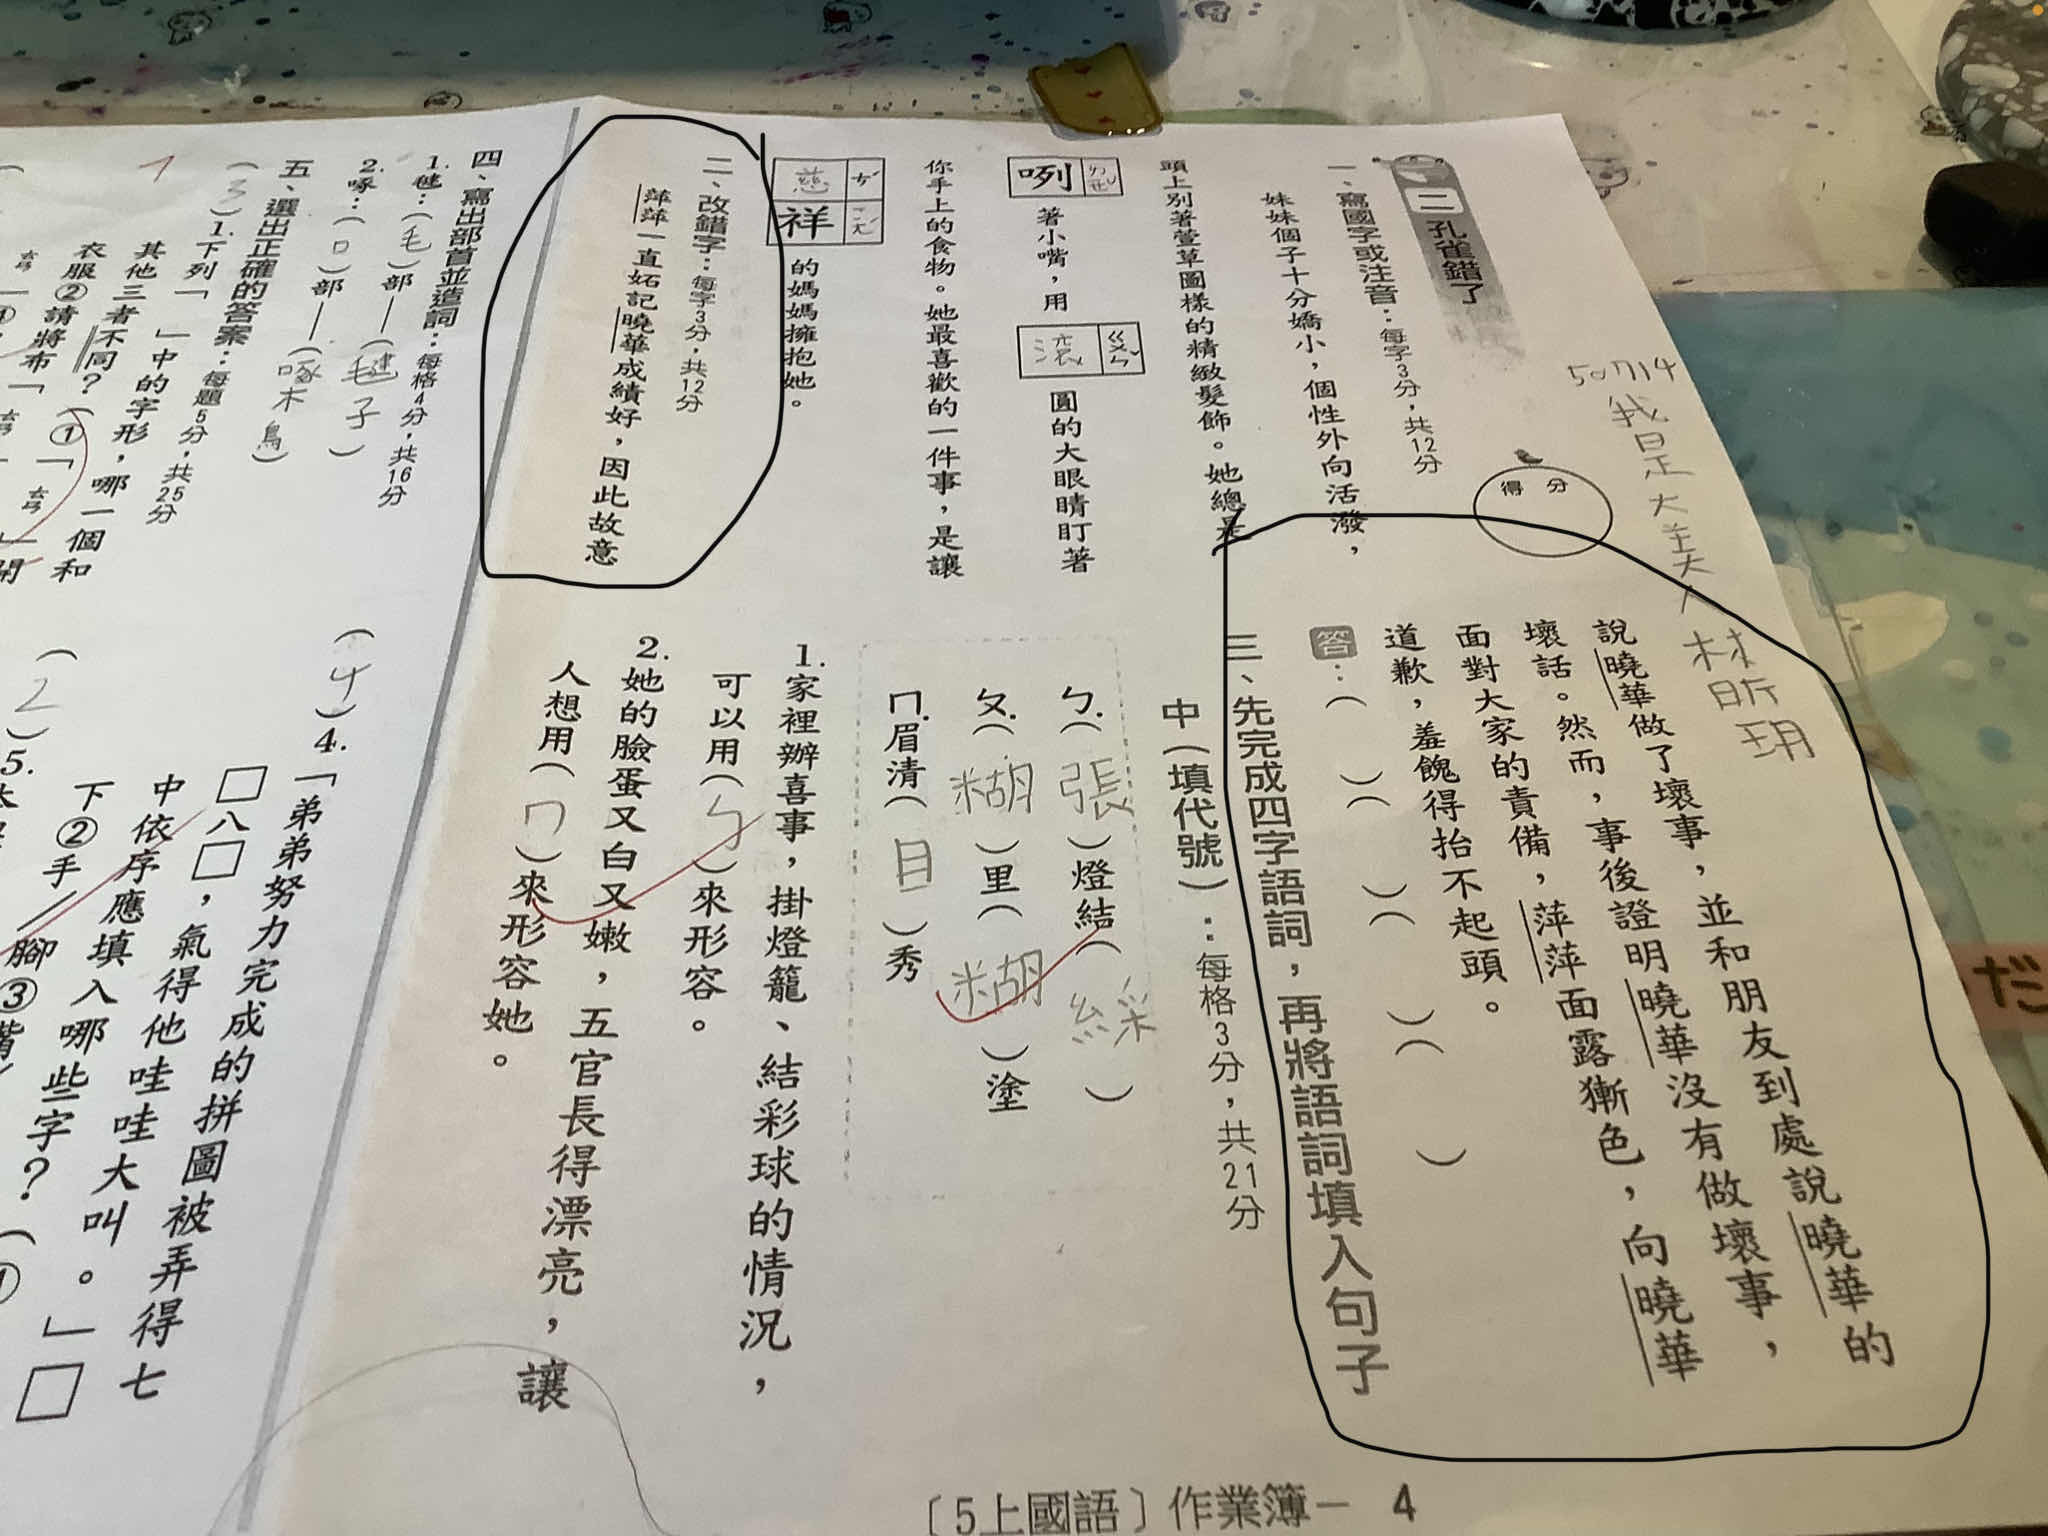 二 孔雀錯了
50714
我是大美人
林昕玥
得分
一、寫國字或注音：每字3分，共12分
妹妹個子十分嬌小，個性外向活潑，
頭上別著萱草圖樣的精緻髮飾。她總是
咧 ㄌㄧㄝˇ 著小嘴，用 滾 ㄍㄨㄣˇ 圓的大眼睛盯著
你手上的食物。她最喜歡的一件事，是讓
慈 ㄘˊ 祥 ㄒㄧㄤˊ 的媽媽擁抱她。
二、改錯字：每字3分，共12分
萍萍一直妬記曉華成績好，因此故意
說曉華做了壞事，並和朋友到處說曉華的
壞話。然而，事後證明曉華沒有做壞事，
面對大家的責備，萍萍面露獑色，向曉華
道歉，羞餽得抬不起頭。
答：（ ）（ ）（ ）（ ）
三、先完成四字語詞，再將語詞填入句子
中（填代號）：每格3分，共21分
ㄅ.（張）燈結（綵）
ㄆ.（糊）里（糊）塗
ㄇ.眉清（目）秀
1.家裡辦喜事，掛燈籠、結彩球的情況，
可以用（ㄅ）來形容。
2.她的臉蛋又白又嫩，五官長得漂亮，讓
人想用（ㄇ）來形容她。
四、寫出部首並造詞：每格4分，共16分
1.毽：（毛）部—（毽子）
2.啄：（口）部—（啄木鳥）
五、選出正確的答案：每題5分，共25分
（3）1.下列「 」中的字形，哪一個和
其他三者不同？（①「
衣服②請將布「 ㄊㄢ 」開
（4）4.「弟弟努力完成的拼圖被弄得七
□八□，氣得他哇哇大叫。」□
中依序應填入哪些字？（①
下②手／腳③嘴／
（2）5.
〔5上國語〕作業簿－ 4
だ